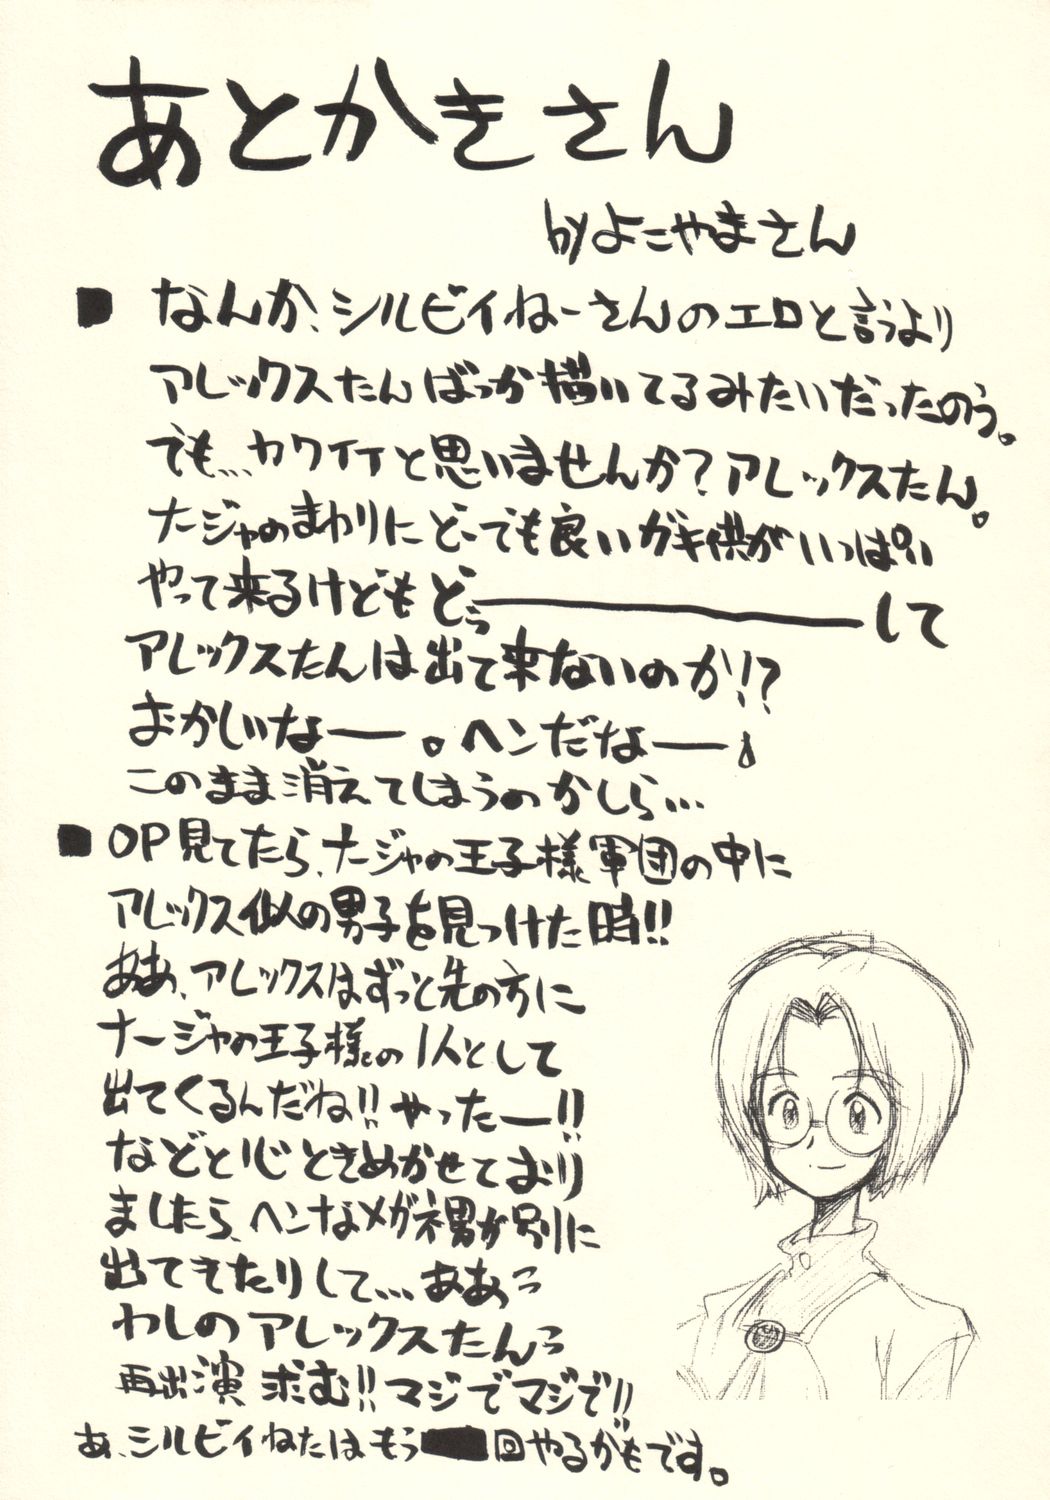 あとかきさん
byよこやまさん
■ なんか、シルビイねーさんのエロと言うより
アレックスたんばっか描いてるみたいだったのう。
でも…カワイイと思いませんか？アレックスたん。
ナージャのまわりにどーでも良いガキ供がいっぱい
やって来るけどもどぅ―――――して
アレックスたんは出て来ないのか!?
おかしいなー。ヘンだなー。
このまま消えてしまうのかしら…
■ OP見てたら、ナージャの王子様軍団の中に
アレックス似の男子を見つけた時!!
ああ、アレックスはずっと先の方に
ナージャの王子様の1人として
出てくるんだね!! やったー!!
などと心ときめかせており
ましたら、ヘンなメガネ男が別に
出てきたりして…ああっ
わしのアレックスたんっ
再出演求む!!マジでマジで!!
あ、シルビイねたはもう 回やるかもです。